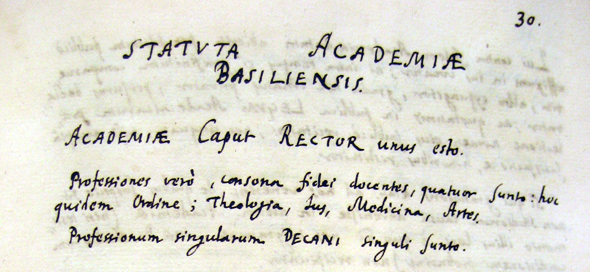 30.
STATVTA ACADEMIÆ
BASILIENSIS.
ACADEMIÆ Caput RECTOR unus esto.
Professiones verò, consona fidei docentes, quatuor sunto: hoc
quidem Ordine; Theologia, Ius, Medicina, Artes.
Professionum singularum DECANI singuli sunto.